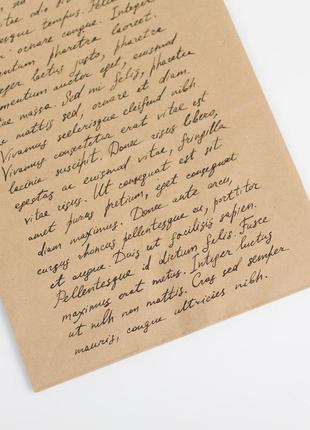 sed
vitae odio
tempus.
ornare congue. Integer
pharetra laoreet.
Integer lectus justo, pharetra
auctor eget, euismod
vitae massa. Sed mi felis, pharetra
mattis sed, ornare et diam.
Vivamus scelerisque eleifend nibh.
Vivamus consectetur erat vitae est
lacinia suscipit. Donec risus libero,
egestas ac euismod vitae, fringilla
vitae risus. Ut consequat est sit
amet purus pretium, eget consequat
diam maximus. Donec ante arcu,
cursus rhoncus pellentesque eu, porttitor
et augue. Duis ut facilisis sapien.
Pellentesque id dictum felis. Fusce
maximus erat metus. Integer luctus
ut nibh non mattis. Cras sed semper
mauris, congue ultricies nibh.